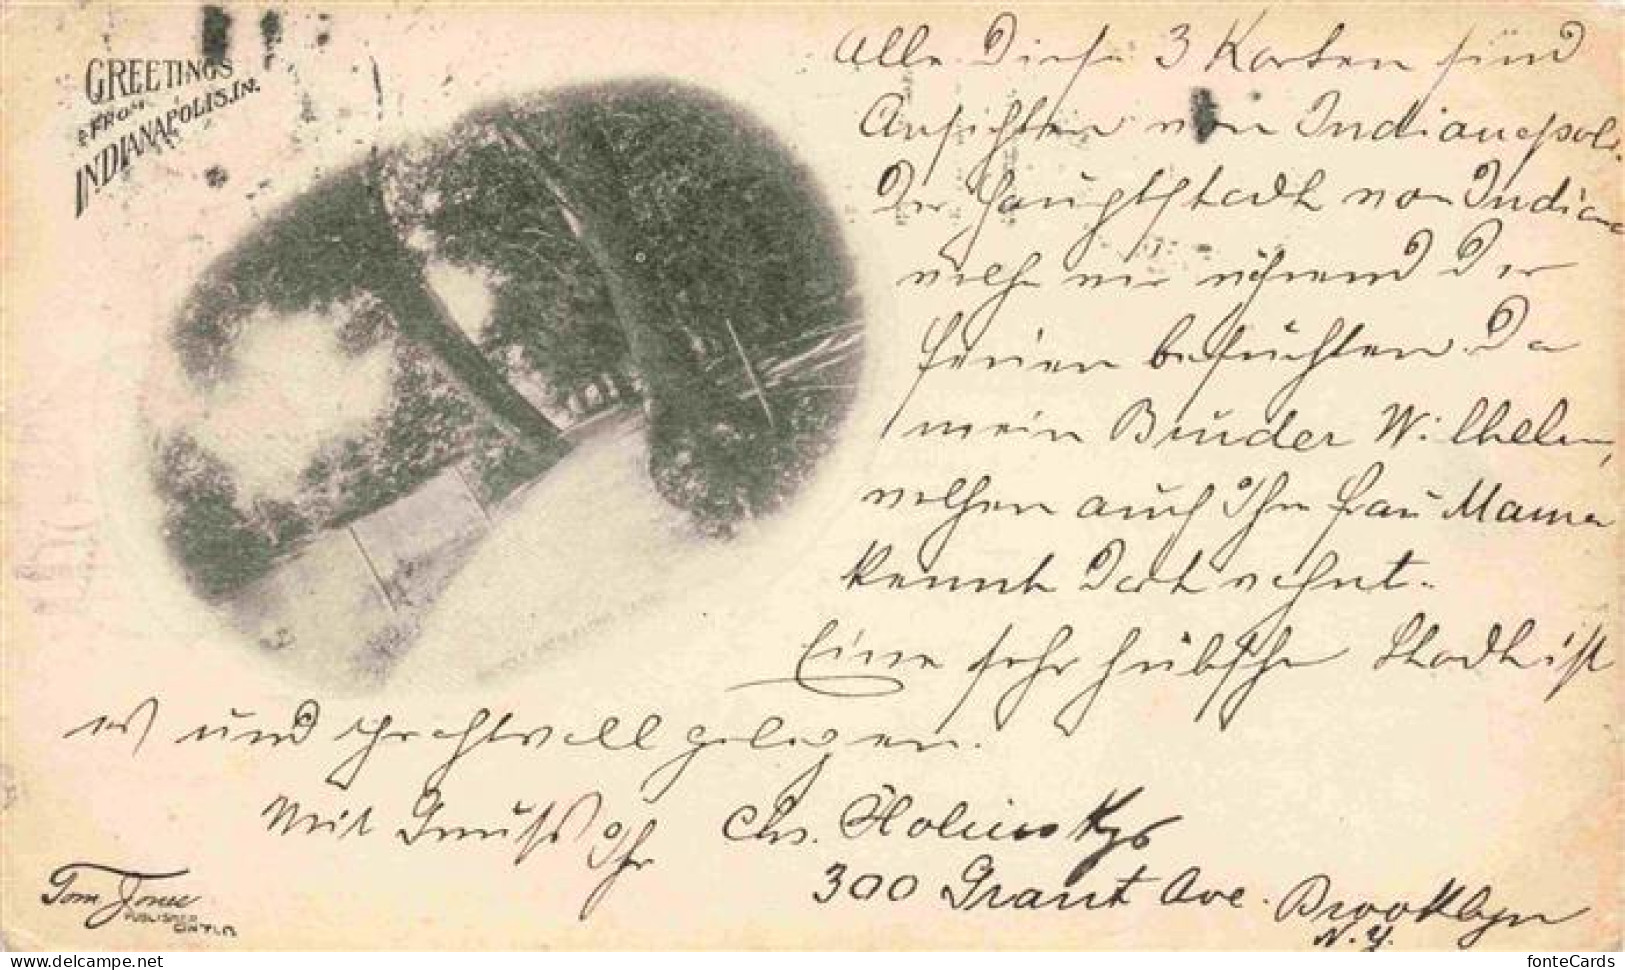 GREETINGS
FROM
INDIANAPOLIS. IN.
Alle Diese 3 Karten sind
Ansichten von Indianapolis.
Der Hauptstadt von Indiana
welche wir während der
Ferien besuchten. Da
mein Bruder Wilhelm,
welchen auch Ihre Frau Mama
kennt Dort wohnt.
Eine sehr hübsche Stadt ist
es und prachtvoll gelegen.
Mit Gruss Ihr Chs.
300 Grant Ave. Brooklyn
N.Y.
Tom Jones
PUBLISHER
CINTI. O.
delcampe.net
fonteCards